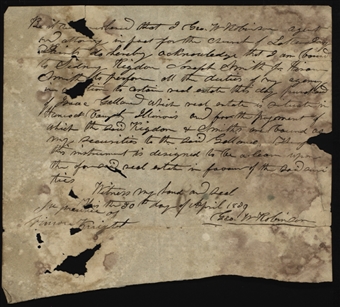 Be it remembered that I Geo. W. Robinson agent
and attorney in fact for the Church of Latter
do hereby acknowledge that I am bound
to Sidney Rigdon Joseph Smith & Hiram
Smith to perform all the duties of my agency
in relation to certain real estate this day purchased
of Isaac Galland which real estate is situate in
Hancock County Illinois and for the payment of
which the said Rigdon & Smiths are bound as
my securities to the said Galland
this instrument is designed to be a lien upon
the for said real estate in favour of the said
ties
Witness my hand and seal
In presence of this the 30th day of April 1839
Knight Geo. W. Robinson